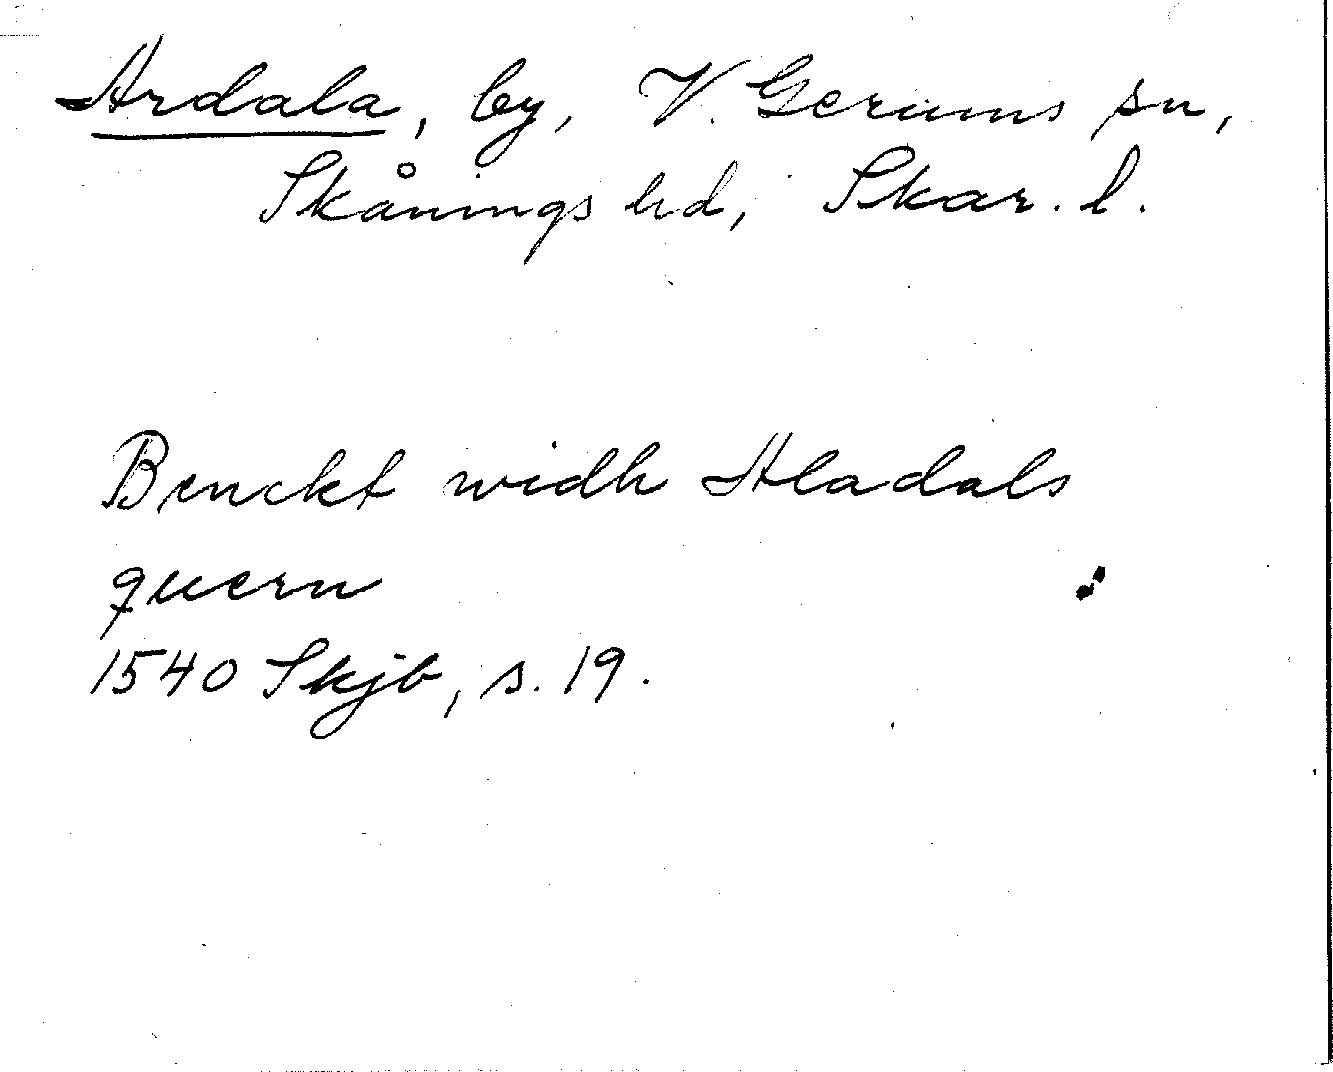 Ardala, by, V. Gerums sn,
Skånings hd, Skar. l.
Benckt widh Aladals
quern
1540 Skjb, s. 19.